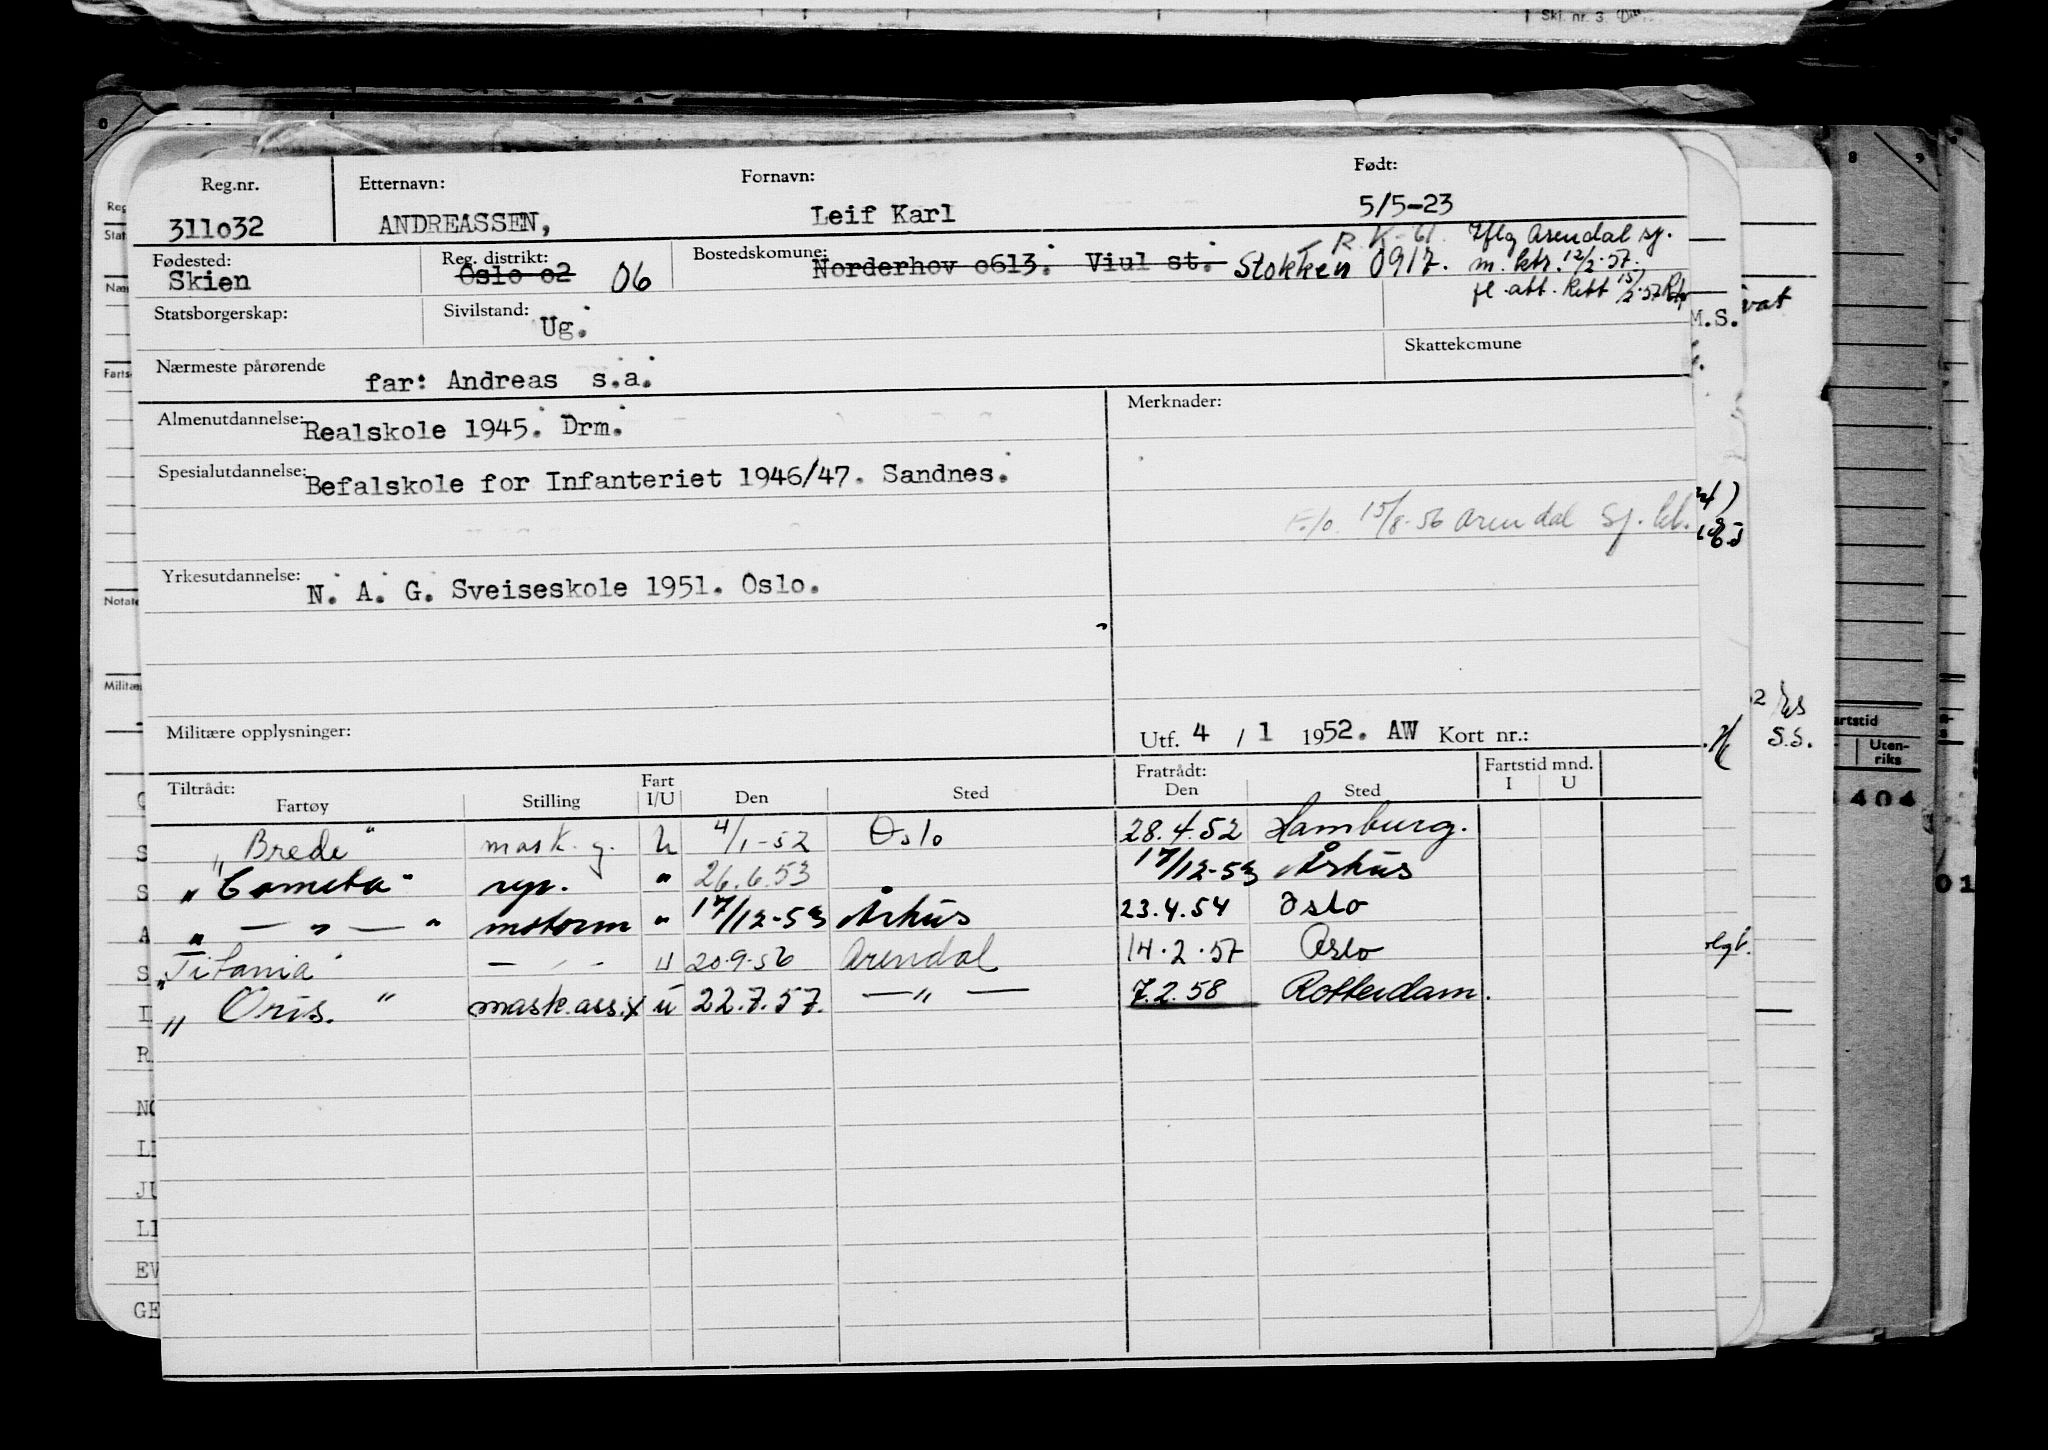 Skl. nr. 3
Reg.nr. Etternavn: Fornavn: Født:
311o32 ANDREASSEN, Leif Karl 5/5-23
R. K-61. Iflg Arendal sj.
Fødested: Reg. distrikt: Bostedskomune:
Skien Oslo o2 06 Norderhov o613. Viul st. Stokken 0917. m. ktr. 12/2-57.
fl. att. Rett 15/2-57
Statsborgerskap: Sivilstand: Ug.
Skattekomune
Nærmeste pårørende far: Andreas s.a.
Almenutdannelse: Realskole 1945. Drm. Merknader:
Spesialutdannelse: Befalskole for Infanteriet 1946/47. Sandnes.
F/o. 15/8-56 Arendal sj.
Yrkesutdannelse: N. A. G. Sveiseskole 1951. Oslo.
Militære opplysninger: Utf. 4 / 1 1952. AW Kort nr.:
Tiltrådt: Fartøy Stilling Fart I/U Den Sted Fratrådt: Den Sted Fartstid mnd. I U
„Brede" mask. g. U 4/1-52 Oslo 28.4.52 Hamburg.
„Cometa" rep. " 26.6.53 17/12-53 Århus
„ — " — " motorm " 17/12-53 Århus 23.4.54 Oslo
„Titania" — " — U 20-9-56 Arendal 14.2.57 Oslo
„Oris." mask.ass.x u 22.7.57. — " — 7.2.58 Rotterdam.
M.S.
S.S.
artstid
Uten-
riks
404
01